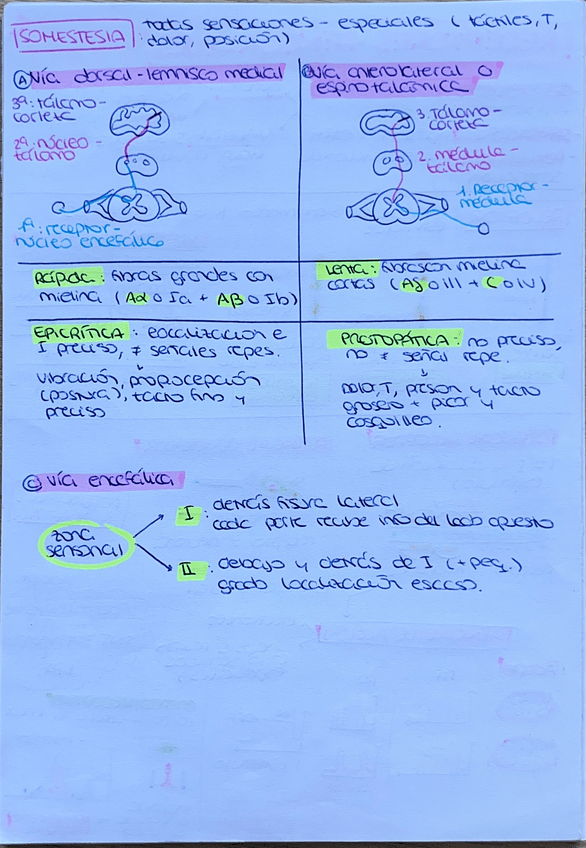 SOMESTESIA
todas sensaciones - especiales (táctiles, T,
dolor, posición)
A Vía dorsal-lemnisco medial
3ª: tálamo-
corteza
2ª: núcleo -
tálamo
1ª: receptor-
núcleo encefálico
B Vía anterolateral o
espinotalámica
3. Tálamo-
corteza
2. médula-
tálamo
1. Receptor-
médula
Rápida: fibras grandes con
mielina (Aα o Ia + Aβ o Ib)
Lenta: fibras con mielina
cortas (Aδ o III + C o IV)
EPICRÍTICA: localización e
I preciso, ≠ señales repes.
↓
vibración, propiocepción
(postura), tacto fino y
preciso
PROTOPÁTICA: no preciso,
no ≠ señal repe.
↓
Dolor, T, presión y tacto
grosero + picor y
cosquilleo.
C Vía encefálica
zona
sensorial
I: detrás fisura lateral
cada parte recibe info del lado opuesto
II: debajo y detrás de I (+ peq.)
grado localización escaso.